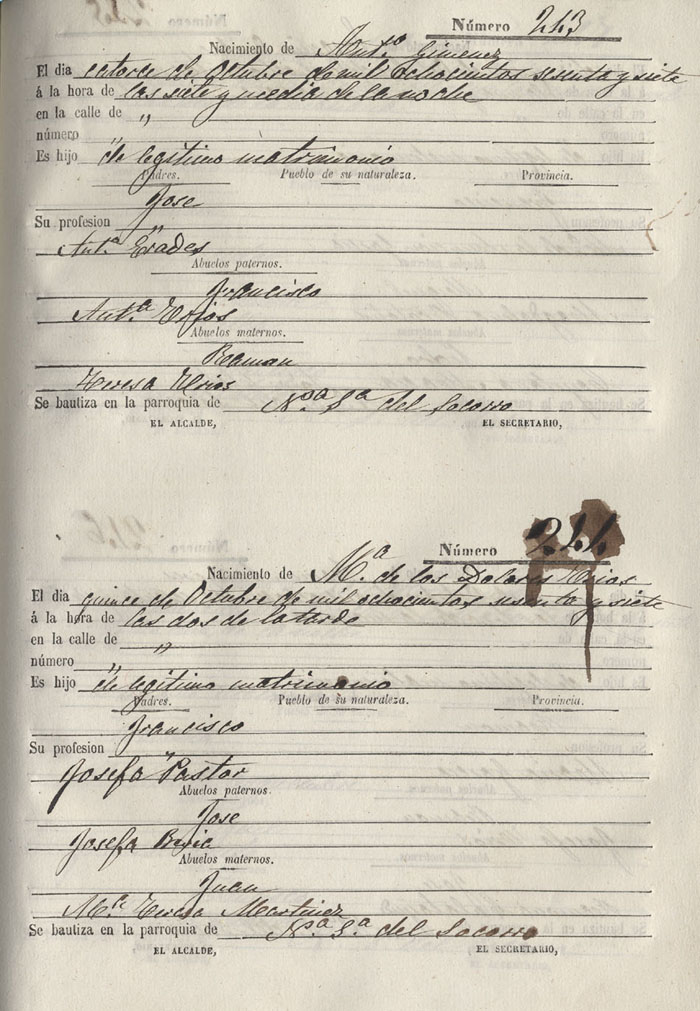 Número 243
Nacimiento de Antº Gimenez
El dia catorce de Octubre de mil ochocientos sesenta y siete
á la hora de las siete y media de la noche
en la calle de "
número "
Es hijo de legitimo matrimonio
Padres. Pueblo de su naturaleza. Provincia.
Jose
Su profesion "
Antª Erades
Abuelos paternos.
Francisco
Antª Urios
Abuelos maternos.
Ramon
Teresa Urios
Se bautiza en la parroquia de Nª Sª del Socorro
EL ALCALDE, EL SECRETARIO,
Número 244
Nacimiento de Mª de los Dolores Urios
El dia quince de Octubre de mil ochocientos sesenta y siete
á la hora de las dos de la tarde
en la calle de "
número "
Es hijo de legitimo matrimonio
Padres. Pueblo de su naturaleza. Provincia.
Francisco
Su profesion "
Josefa Pastor
Abuelos paternos.
Jose
Josefa
Abuelos maternos.
Juan
Mª Teresa Martinez
Se bautiza en la parroquia de Nª Sª del Socorro
EL ALCALDE, EL SECRETARIO,